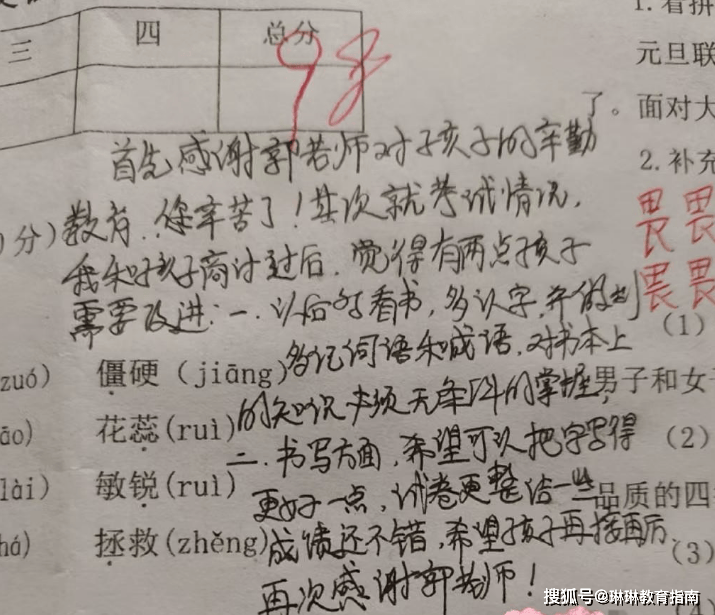 三 四 总分
98
1.看拼
元旦联
了。面对大
2.补充
畏 畏
畏 畏
(1)
男子和女
(2)
品质的四
(3)
首先感谢郭老师对孩子的辛勤
分)教育,您辛苦了!其次就考试情况,
我和孩子商讨过后,觉得有两点孩子
需要改进:一.以后多看书,多认字,并做到
多记词语和成语,对书本上
的知识必须无条件的掌握,
二.书写方面,希望可以把字写得
更好一点,试卷更整洁一些
成绩还不错,希望孩子再接再厉
再次感谢郭老师!
zuó) 僵硬(jiāng)
āo) 花蕊(ruì)
lài) 敏锐(ruì)
há) 拯救(zhěng)
搜狐号@琳琳教育指南